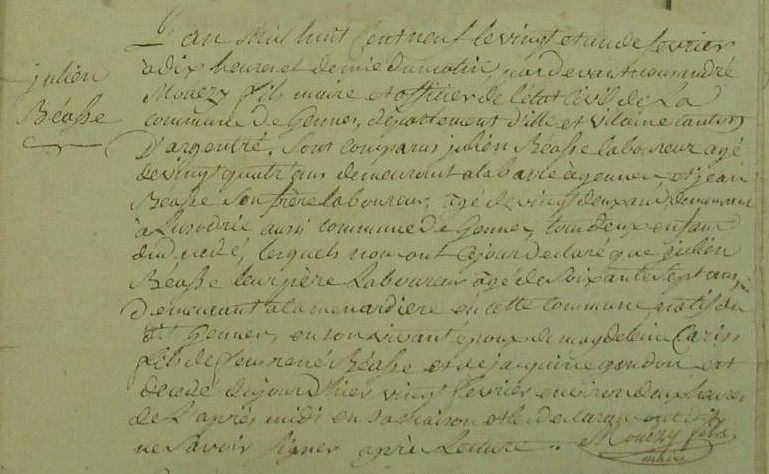 julien
Béasse
L'an Mil huit Cent neuf le vingt et un de fevrier
à dix heures et demie du matin, par devant nous andré
Mouezy fils maire et officier de l'état civil de La
commune de Gennes, département d'ille et vilaine canton
D'argentré, Sont comparus julien Béasse laboureur agé
de vingt quatre ans demeurant a la à gennes et jean
Béasse Son frère laboureur, agé de vingt deux ans demeurant
à aussi commune de Gennes, tous deux enfans
du decedé, lesquels nous ont ce jour declaré que julien
Béasse leur père Laboureur agé de Soixante Sept ans,
Demeurant a la menardiere en cette commune, natif du
dit Gennes, en son vivant époux de magdeleine
fils de feu rené Béasse et de jacquine gendron est
decedé du jour D'hier vingt fevrier environ deux heures
de L'après midi en sa maison et les declarans ont dit
ne Savoir Signer après Lecture ..
Mouezy fils
maire